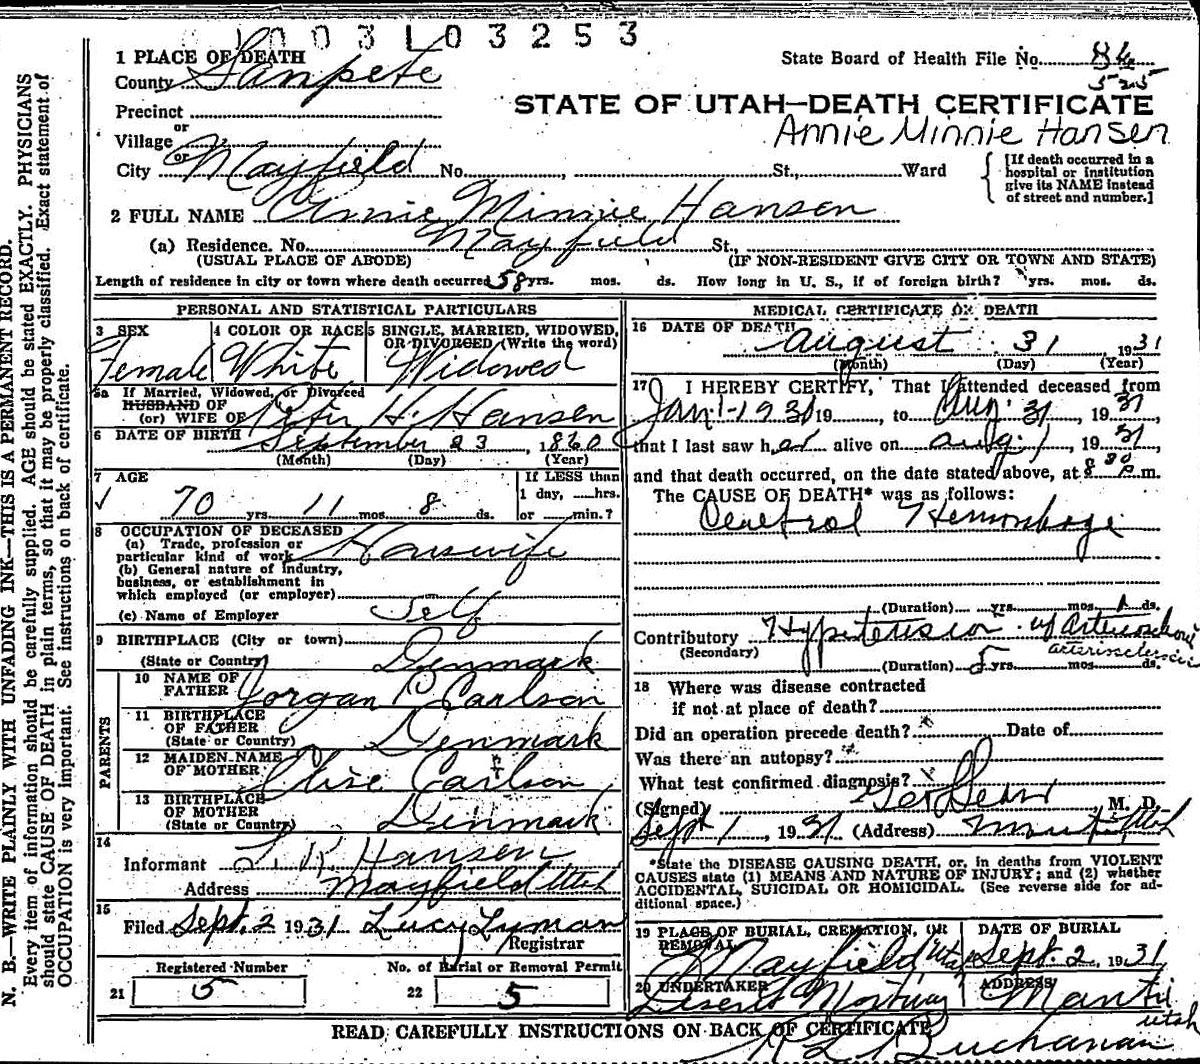 1003103253
1 PLACE OF DEATH
State Board of Health File No. 84
525
County Sanpete
STATE OF UTAH—DEATH CERTIFICATE
Precinct
Annie Minnie Hansen
or
Village
or
City Mayfield No. , St., Ward
[If death occurred in a hospital or institution give its NAME instead of street and number.]
2 FULL NAME Annie Minnie Hansen
(a) Residence. No. Mayfield St.,
(USUAL PLACE OF ABODE) (IF NON-RESIDENT GIVE CITY OR TOWN AND STATE)
Length of residence in city or town where death occurred 58 yrs. mos. ds. How long in U. S., if of foreign birth? yrs. mos. ds.
PERSONAL AND STATISTICAL PARTICULARS
3 SEX
Female
4 COLOR OR RACE
White
5 SINGLE, MARRIED, WIDOWED,
OR DIVORCED (Write the word)
Widowed
5a If Married, Widowed, or Divorced
HUSBAND OF
(or) WIFE OF Peter H. Hansen
6 DATE OF BIRTH September 23, 1860
(Month) (Day) (Year)
7 AGE
70 yrs. 11 mos. 8 ds.
If LESS than
1 day, hrs.
or min.?
8 OCCUPATION OF DECEASED
(a) Trade, profession or
particular kind of work Housewife
(b) General nature of industry,
business, or establishment in
which employed (or employer)
(c) Name of Employer Self
9 BIRTHPLACE (City or town)
(State or Country) Denmark
PARENTS
10 NAME OF
FATHER Jorgan P. Carlson
11 BIRTHPLACE
OF FATHER
(State or Country) Denmark
12 MAIDEN NAME
OF MOTHER Elise Carlson
13 BIRTHPLACE
OF MOTHER
(State or Country) Denmark
14
Informant Hansen
Address Mayfield Utah
15
Filed Sept. 2 1931 Lucy Lyman
Registrar
Registered Number
21 5
No. of Burial or Removal Permit
22 5
MEDICAL CERTIFICATE OF DEATH
16 DATE OF DEATH
August 31 1931
(Month) (Day) (Year)
17 I HEREBY CERTIFY, That I attended deceased from
Jan. 1-1931 19 , to Aug. 31, 1931
that I last saw her alive on Aug. 1, 1931
and that death occurred, on the date stated above, at 8 30 p. m.
The CAUSE OF DEATH* was as follows:
Cerebral Hemorrhage
(Duration) yrs. mos. 1 ds.
Contributory Hypertension
(Secondary) arteriosclerosis
(Duration) 5 yrs. mos. ds.
18 Where was disease contracted
if not at place of death?
Did an operation precede death? Date of
Was there an autopsy?
What test confirmed diagnosis?
(Signed) M. D.
Sept 1, 1931 (Address) Manti Utah
*State the DISEASE CAUSING DEATH, or, in deaths from VIOLENT
CAUSES state (1) MEANS AND NATURE OF INJURY; and (2) whether
ACCIDENTAL, SUICIDAL OR HOMICIDAL. (See reverse side for ad-
ditional space.)
19 PLACE OF BURIAL, CREMATION, OR
REMOVAL
Mayfield Utah
DATE OF BURIAL
Sept. 2, 1931
20 UNDERTAKER
Deseret Mortuary
ADDRESS
Manti
utah
READ CAREFULLY INSTRUCTIONS ON BACK OF CERTIFICATE
Buchanan
N. B.—WRITE PLAINLY WITH UNFADING INK—THIS IS A PERMANENT RECORD.
Every item of information should be carefully supplied. AGE should be stated EXACTLY. PHYSICIANS
should state CAUSE OF DEATH in plain terms, so that it may be properly classified. Exact statement of
OCCUPATION is very important. See instructions on back of certificate.